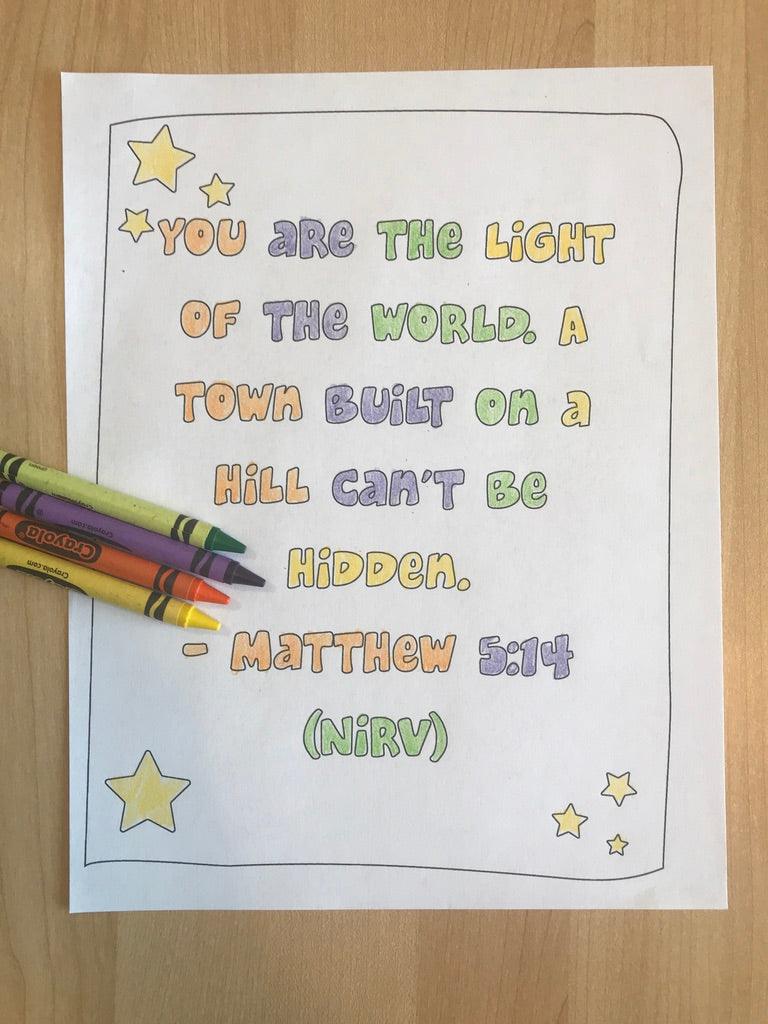 YOU aRe THe LiGHT
OF THe WORLD. A
TOWn BUiLT On a
HiLL Can'T Be
HiDDen.
- MaTTHeW 5:14
(NiRV)
green
Crayola.com
Crayola
Crayola.com